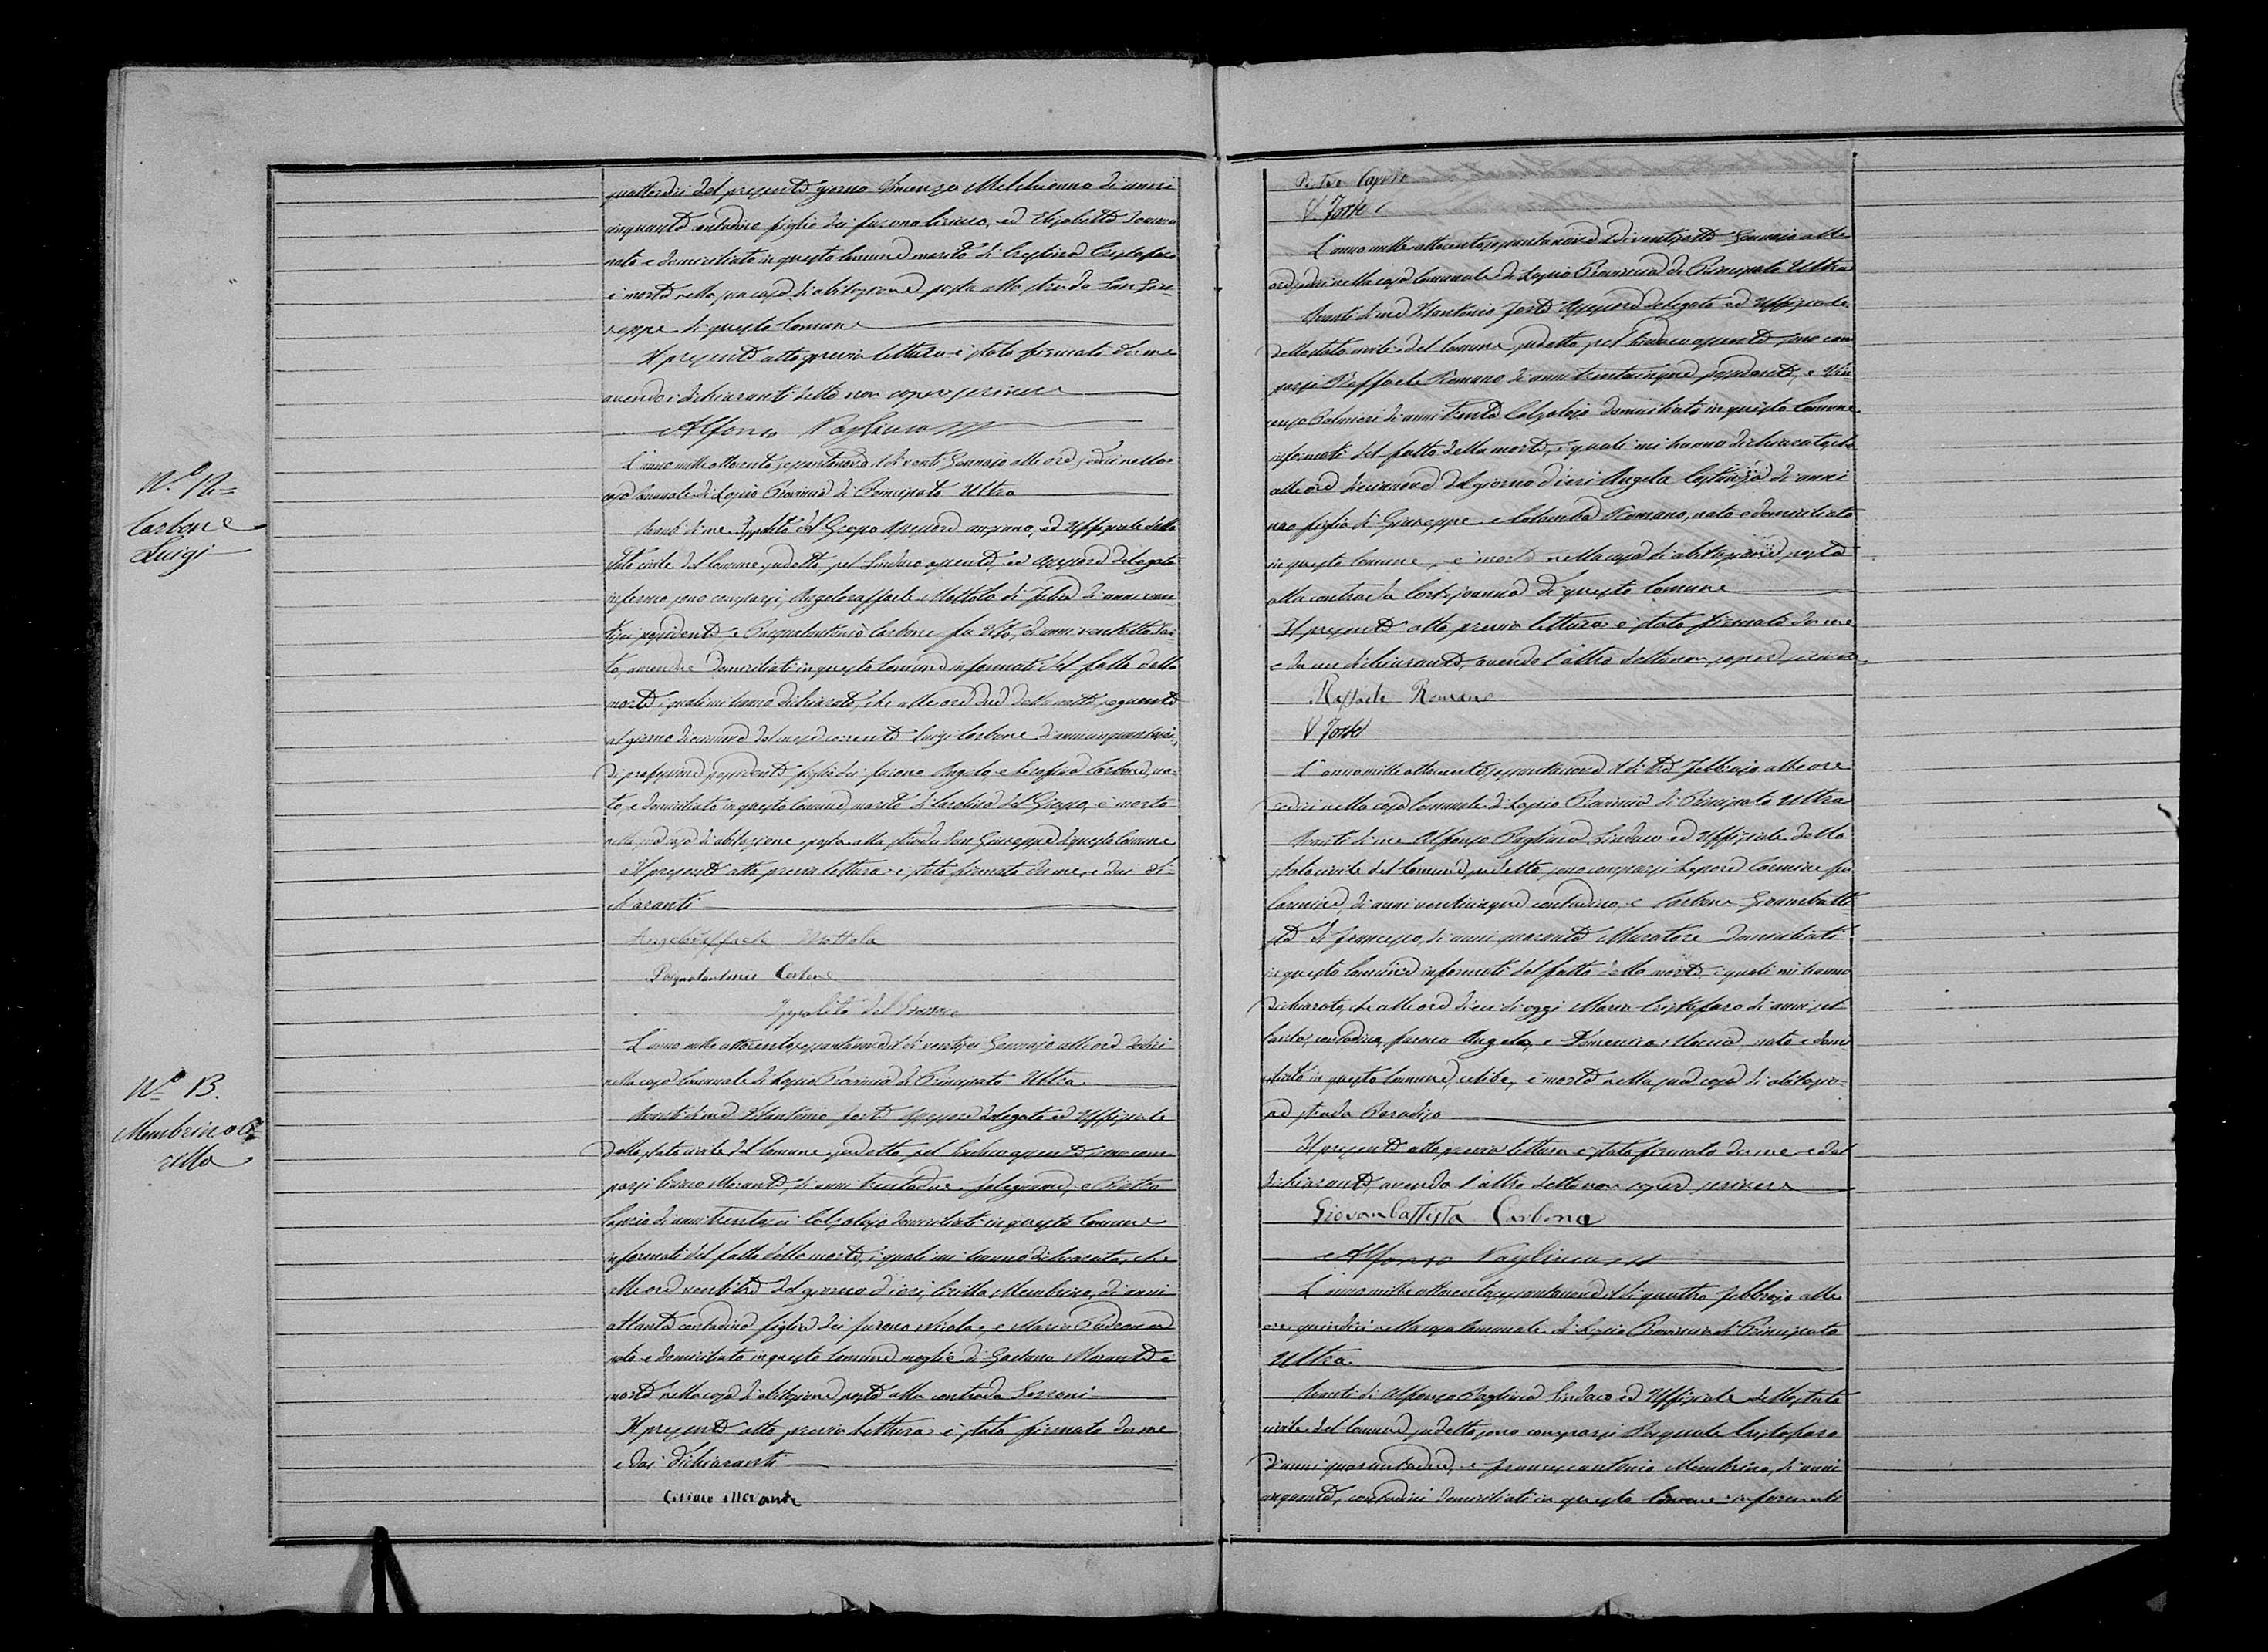 quattordici del presente giorno Vincenzo Melchionno di anni
cinquanta contadino figlio dei furono Ciriaco, ed Elisabetta
nato e domiciliato in questo Comune marito di Cristina Cristofaro
è morto nella sua casa di abitazione posta alla strada San Giu-
seppe di questo Comune
Il presente atto previa lettura è stato firmato da me
avendo i dichiaranti detto non sapere scrivere
Alfonso Pagliuca
N.º 12=
Carbone
Luigi
L'anno mille ottocento sessantanove il dì venti Gennajo alle ore sedici nella
casa Comunale di Lapio Provincia di Principato Ultra
Avanti di me Ippolito del Grosso Assessore anziano, ed Uffiziale dello
Stato Civile del Comune sudetto pel Sindaco assente, ed Assessore delegato
infermo sono comparsi, Angeloraffaele Mottola di Felice di anni ven-
tisei possidente e Pasqualantonio Carbone fu Vito, di anni ventotto Sar-
to, amendue domiciliati in questo Comune informati del fatto della
morte, i quali mi hanno dichiarato, che alle ore due della notte seguente
al giorno diecinove del mese corrente Luigi Carbone di anni cinquantasei,
di professione possidente figlio dei furono Angelo, e Serafina Carbone, na-
to, e domiciliato in questo Comune, marito di Carolina del Grosso, è morto
nella sua casa di abitazione posta alla strada San Giuseppe di questo Comune
Il presente atto previa lettura è stato firmato da me, e dai di-
chiaranti
Angeloraffaele Mottola
Pasqualantonio Carbone
Ippolito del Grosso
N.º 13.
Membrino Ci-
rilla
L'anno mille ottocentosessantanove il dì ventisei Gennajo alle ore sedici
nella casa Comunale di Lapio Provincia di Principato Ultra
Avanti di me Vitantonio Forte Assessore delegato ed Uffiziale
dello stato civile del Comune sudetto pel Sindaco assente sono com-
parsi Ciriaco Morante, di anni trentadue falegname, e Pietro
Caprio di anni trentasei Calzolajo domiciliati in questo Comune
informati del fatto della morte, i quali mi hanno dichiarato, che
alle ore ventitre del giorno d'ieri, Cirilla Membrino, di anni
ottanta contadina figlia dei furono Nicola, e Maria
nata e domiciliata in questo Comune moglie di Gaetano Morante è
morta nella casa di abitazione posta alla contrada Serroni
Il presente atto previa lettura è stato firmato da me
e dai dichiaranti
Ciriaco Morante
Pietro Caprio
V. Forte
L'anno mille ottocentosessantanove il dì ventisette Gennajo alle
ore sedici nella casa Comunale di Lapio Provincia di Principato Ultra
Avanti di me Vitantonio Forte Assessore delegato ed Uffiziale
dello stato civile del Comune sudetto pel Sindaco assente sono com-
parsi Raffaele Romano di anni trentacinque possidente, e Vin-
cenzo Palmieri di anni trenta Calzolajo domiciliati in questo Comune
informati del fatto della morte, i quali mi hanno dichiarato, che
alle ore diecinove del giorno d'ieri Angela Costanza di anni
uno figlia di Giuseppe e Colomba Romano, nata e domiciliata
in questo Comune, è morta nella casa di abitazione posta
alla contrada Cortejoanna di questo Comune
Il presente atto previa lettura è stato firmato da me
e da un dichiarante, avendo l'altro detto non sapere scrivere.
Raffaele Romano
V. Forte
L'anno mille ottocentosessantanove il dì tre Febbrajo alle ore
sedici nella casa Comunale di Lapio Provincia di Principato Ultra
Avanti di me Alfonso Pagliuca Sindaco ed Uffiziale dello
stato civile del Comune sudetto sono comparsi Lepore Carmine fu
Carmine, di anni venticinque contadino, e Carbone Giovambatti-
sta di Francesco, di anni quaranta Muratore domiciliati
in questo Comune informati del fatto della morte, i quali mi hanno
dichiarato, che alle ore dieci di oggi Maria Cristofaro di anni set-
tanta, contadina, furono Angelo, e Domenica nata e domi-
ciliata in questo Comune, celibe, è morta nella sua casa di abitazio-
ne strada Paradiso
Il presente atto previa lettura è stato firmato da me e dal
dichiarante, avendo l'altro detto non sapere scrivere
Giovanbattista Carbone
Alfonso Pagliuca
L'anno mille ottocentosessantanove il dì quattro Febbrajo alle
ore quindici nella casa Comunale di Lapio Provincia di Principato
Ultra.
Avanti di Alfonso Pagliuca Sindaco ed Uffiziale dello stato
civile del Comune sudetto sono comparsi Pasquale Cristofaro
di anni quarantadue, e Francescantonio Membrino, di anni
cinquanta, contadini domiciliati in questo Comune informati